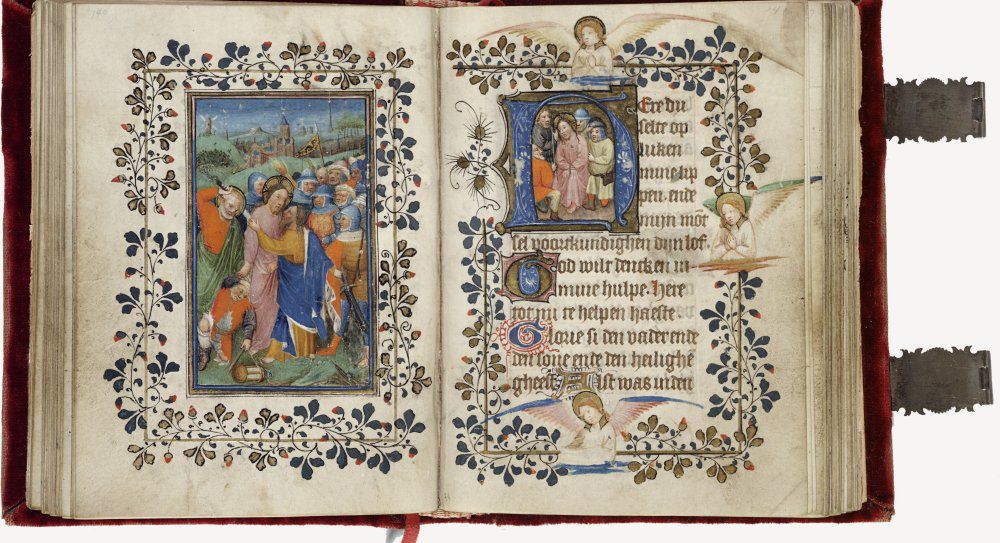 Ere du
selte op
luken
mine lip
pen. ende
mijn mōt
sel voortkundighen dijn lof.
God wilt dencken in
mine hulpe. Here
tot mi te helpen haeste
Glorie si den vader ende
den sone ende den heilighē
gheest Alst was inden